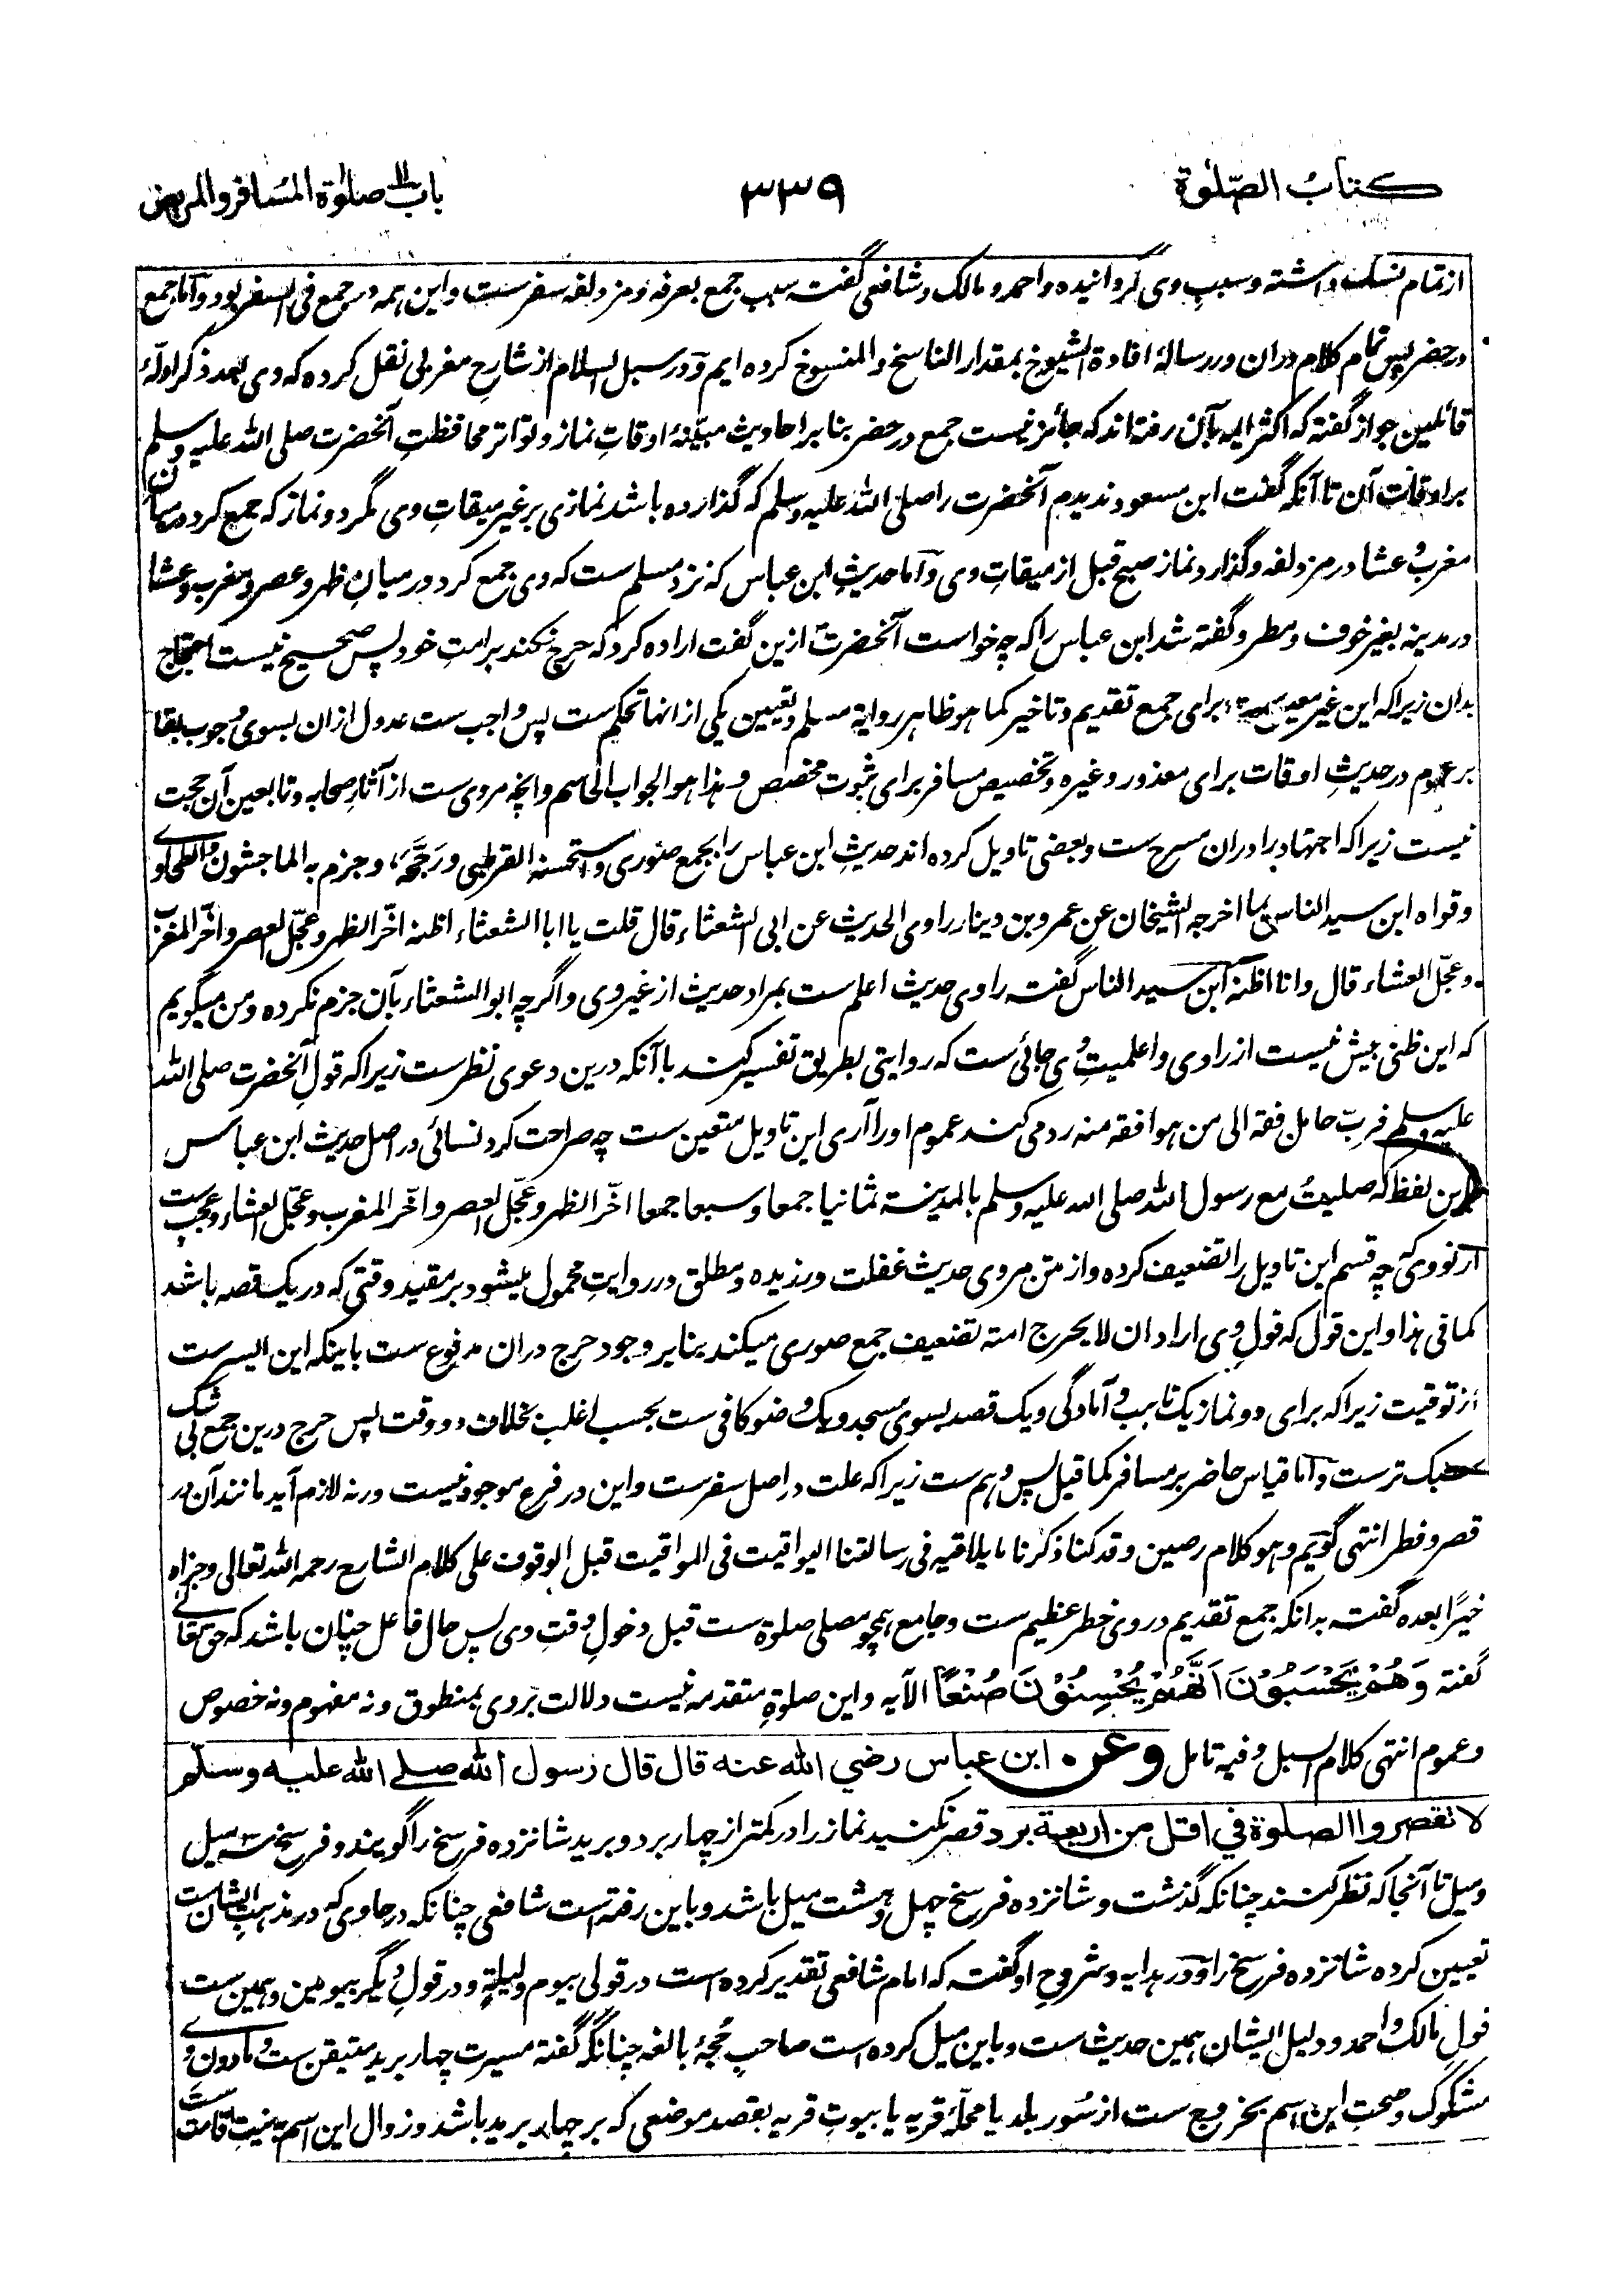 کتابُ الصّلوٰة
۳۳۹
باب صلوٰة المسافر والمریض
از تمام نسک داشته و سبب وی گردانیده و احمد و مالک و شافعی گفته سبب جمع بعرفه و مزدلفه سفرست و این همه در جمع فی السفر بود و اما جمع
در حضر پس تمام کلام دران در رسالۀ افادة الشیوخ بمقدار الناسخ والمنسوخ کرده ایم و در سبل السلام از شارح مغربی نقل کرده که وی بعد ذکر ادلۀ
قائلین جواز گفته که اکثر ائمه بآن رفته اند که جائز نیست جمع در حضر بنا بر احادیث مبیّنۀ اوقاتِ نماز و تواتر محافظتِ آنحضرت صلی الله علیه وسلم
بر اوقات آن تا آنکه گفت ابن مسعود ندیدم آنحضرت را صلی الله علیه وسلم که گذارده باشد نمازی بر غیر میقاتِ وی مگر دو نماز که جمع کرد میان
مغرب و عشا در مزدلفه و گذارد نماز صبح قبل از میقاتِ وی و اما حدیثِ ابن عباس که نزد مسلم ست که وی جمع کرد در میانِ ظهر و عصر و مغرب و عشا
در مدینه بغیر خوف و مطر و گفته شد ابن عباس را که چه خواست آنحضرت ازین گفت اراده کرد که حرج نکند بر امتِ خود پس صحیح نیست احتجاج
بدان زیرا که این غیر معین ست برای جمع تقدیم و تاخیر کما هو ظاهر روایة مسلم و تعیین یکی از انها تحکم ست پس واجب ست عدول ازان بسوی وجوب بقا
بر عموم در حدیثِ اوقات برای معذور و غیره و تخصیص مسافر برای ثبوت مخصص و هذا هو الجواب الحاسم و انچه مروی ست از آثارِ صحابه و تابعین آن حجت
نیست زیرا که اجتهاد را دران مسرح ست و بعضی تاویل کرده اند حدیثِ ابن عباس را بجمع صوری و استحسنه القرطبی و رَجَّحَهُ، و جزم به الماجشون والطحاوی
و قواه ابن سید الناس بما اخرجه الشیخان عن عمرو بن دینار راوی الحدیث عن ابی الشعثاء قال قلت یا ابا الشعثاء اظنه اخّر الظهر و عجّل العصر و اخّر المغرب
و عجّل العشاء قال و انا اظنه ابن سید الناس گفته راوی حدیث اعلم ست بمراد حدیث از غیر وی و اگرچه ابو الشعثاء بآن جزم نکرده و من میگویم
که این ظنی بیش نیست از راوی و اعلمیتِ وی جائی ست که روایتی بطریق تفسیر کند با آنکه درین دعوی نظرست زیرا که قولِ آنحضرت صلی الله
علیه وسلم فربّ حامل فقه الی من هو افقه منه رد می کند عموم او را آری این تاویل متعین ست چه صراحت کرد نسائی در اصل حدیث ابن عباس
باین لفظ که صلیتُ مع رسول الله صلی الله علیه وسلم بالمدینة ثمانیا جمعا و سبعا جمعا اخّر الظهر و عجّل العصر و اخّر المغرب و عجّل العشاء و عجب ست
از نووی که چه قسم این تاویل را تضعیف کرده و از متن مروی حدیث غفلت ورزیده و مطلق در روایتِ محمول میشود بر مقید وقتی که در یک قصه باشد
کما فی هذا و این قول که قولِ وی اراد ان لا یحرج امته تضعیف جمع صوری میکند بنا بر وجود حرج دران مدفوع ست باینکه این ایسرست
از توقیت زیرا که برای دو نماز یک تاهب و آمادگی و یک قصد بسوی مسجد و یک وضو کافی ست بحسب اغلب بخلاف دو وقت پس حرج درین جمع بی شک
سبک ترست و اما قیاس حاضر بر مسافر کما قیل پس وهم ست زیرا که علت در اصل سفرست و این در فرع موجود نیست ورنه لازم آید مانند آن در
قصر و فطر انتهی گویم و هو کلام رصین و قد کنا ذکرنا ما یلاقیه فی رسالتنا الیواقیت فی المواقیت قبل الوقوف علی کلام الشارح رحمه الله تعالی و جزاه
خیرًا بعده گفته بدانکه جمع تقدیم در وی خطر عظیم ست و جامع همچو مصلی صلوة ست قبل دخولِ وقتِ وی پس حال فاعل چنان باشد که حق تعالی
گفته وَهُمْ یَحْسَبُوْنَ اَنَّهُمْ یُحْسِنُوْنَ صُنْعًا الآیه و این صلوةِ متقدمه نیست دلالت بر وی بمنطوق و نه مفهوم و نه خصوص
و عموم انتهی کلام السبل و فیه تامل وعن ابن عباس رضي الله عنه قال قال رسول الله صلے الله علیه وسلم
لا تقصروا الصلوة في اقل من اربعة برد قصر نکنید نماز را در کمتر از چهار برد و برید شانزده فرسخ را گویند و فرسخ سه میل
و میل تا آنجا که نظر کنند چنانکه گذشت و شانزده فرسخ چهل و هشت میل باشد و باین رفته است شافعی چنانکه در حاوی که در مذهب ایشان ست
تعیین کرده شانزده فرسخ را و در هدایه و شروحِ او گفته که امام شافعی تقدیر کرده است در قولی بیوم و لیلةٍ و در قولِ دیگر بیومین و همین ست
قولِ مالک و احمد و دلیل ایشان همین حدیث ست و باین میل کرده است صاحبِ حُجۀ بالغه چنانکه گفته مسیرت چهار برید متیقن ست و مادون وی
مشکوک و صحتِ این اسم بخروج ست از سُور بلد یا محلّۀ قریه یا بیوتِ قریه بقصد موضعی که بر چهار برید باشد و زوال این اسم بنیتِ اقامت ست